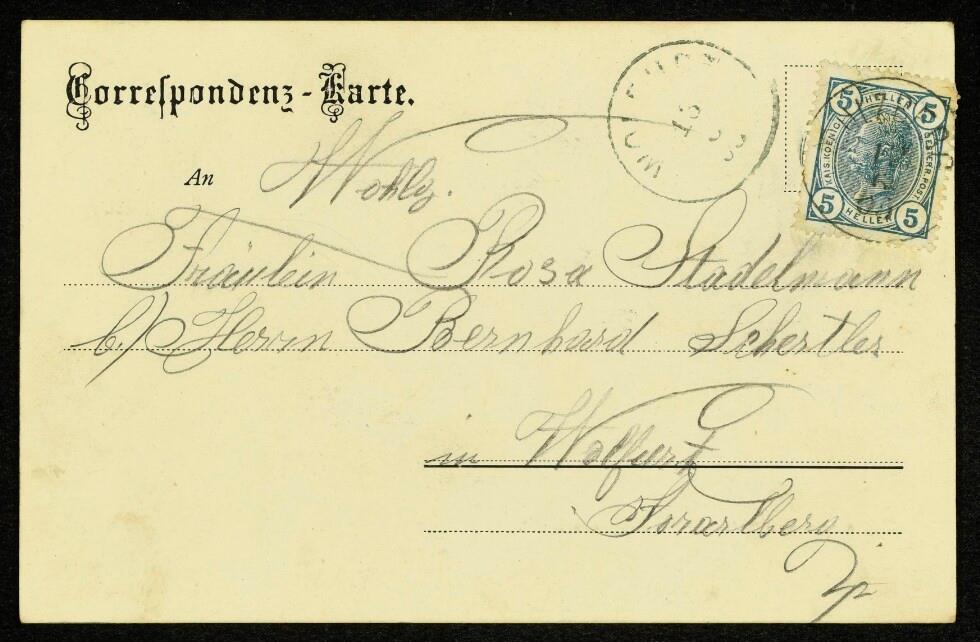 Correspondenz-Karte.
An Wohlg.
Fräulein Rosa Stadelmann
b/ Herrn Bernhard Schertler
in Wolfurt
Vorarlberg
WOLFURT
5 HELLER 5
KAIS. KOENIGL. OESTERR. POST
5 HELLER 5